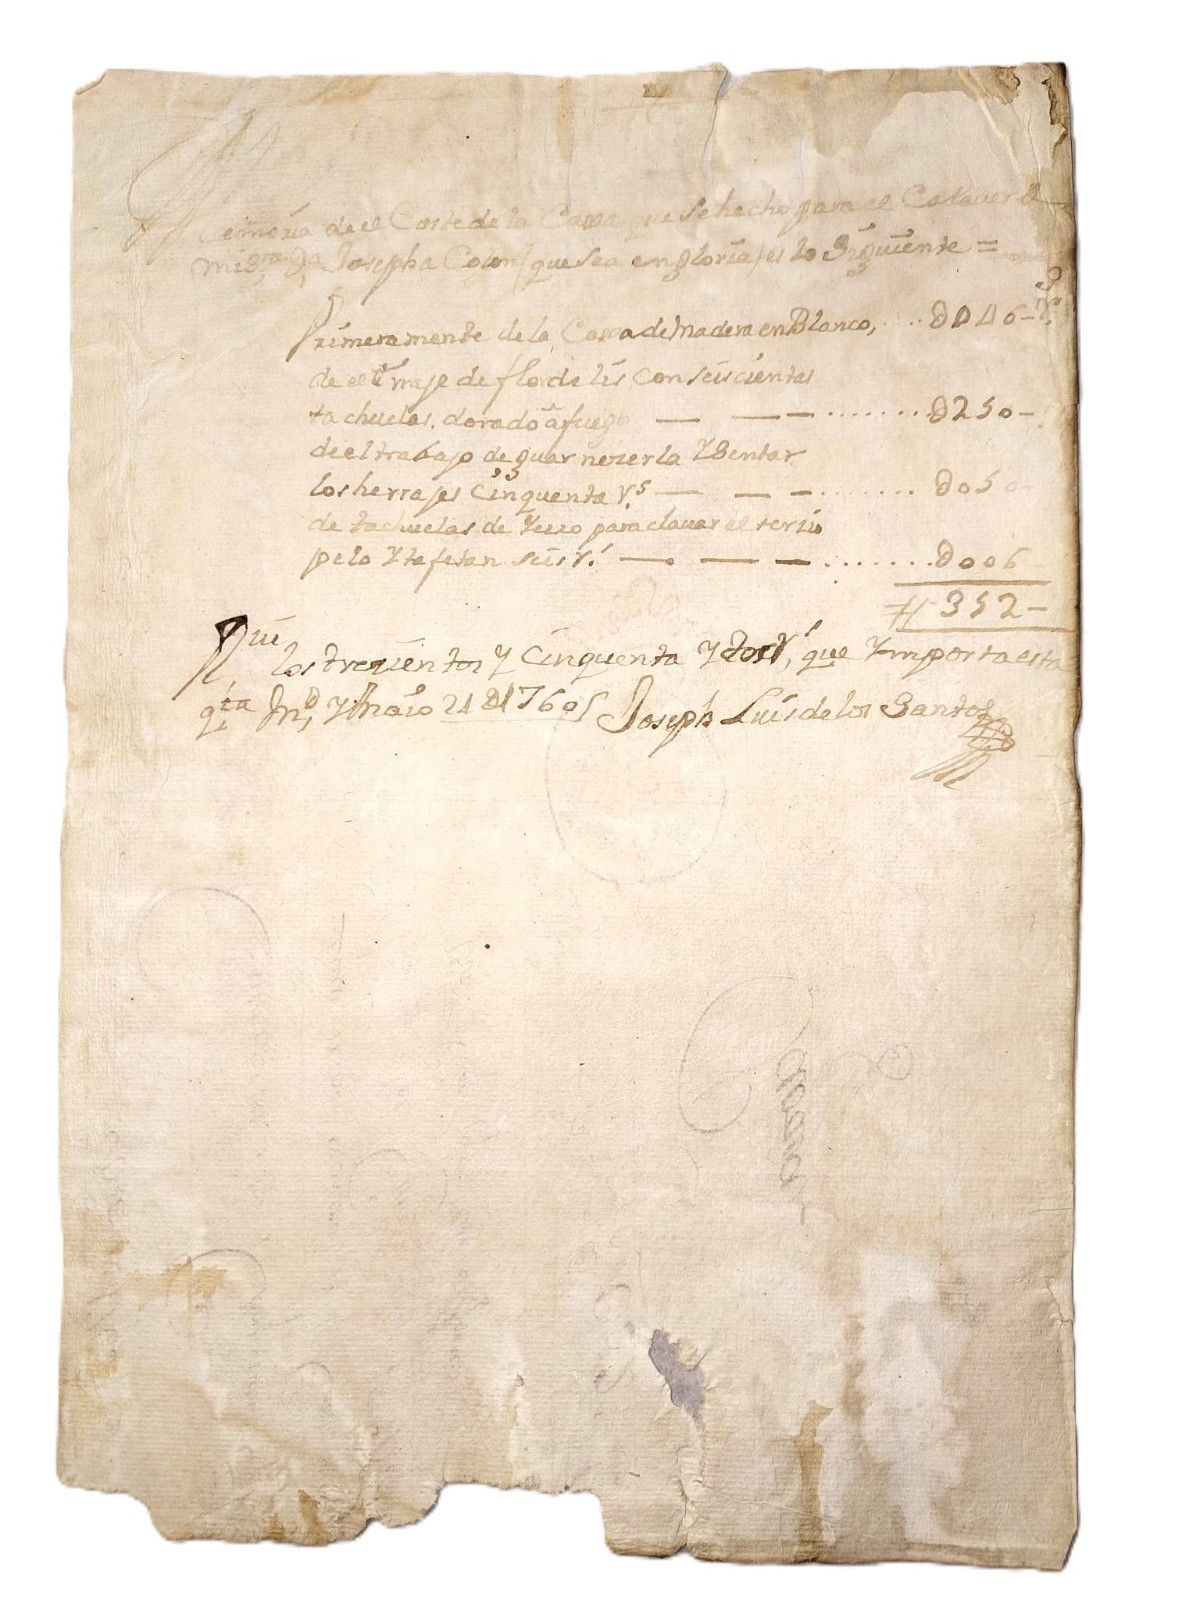 Memoria de el Coste de la Caxa que se hecho para el Cadaver de
mi S.ra D.a Josepha Colon (que sea en gloria) es lo Siguiente =
Primeramente de la Caxa de Madera en Blanco, .... 0046 -
de el erraje de flor de lis con seiscientas
tachuelas. dorado a fuego — — - ........ 0250 -
de el trabajo de guarnezerla Y Sentar
los herrajes Cinquenta r.s — — - ........ 0050 -
de tachuelas de Yerro para clavar el terzio
pelo Y tafetan seis r.s — — - ........ 0006 -
# 352 -
los trezientos y Cinquenta Y dos r.s, que Ymporta esta
q.ta M.d, Y Maio 21 de 1760 Joseph Luis de los Santos